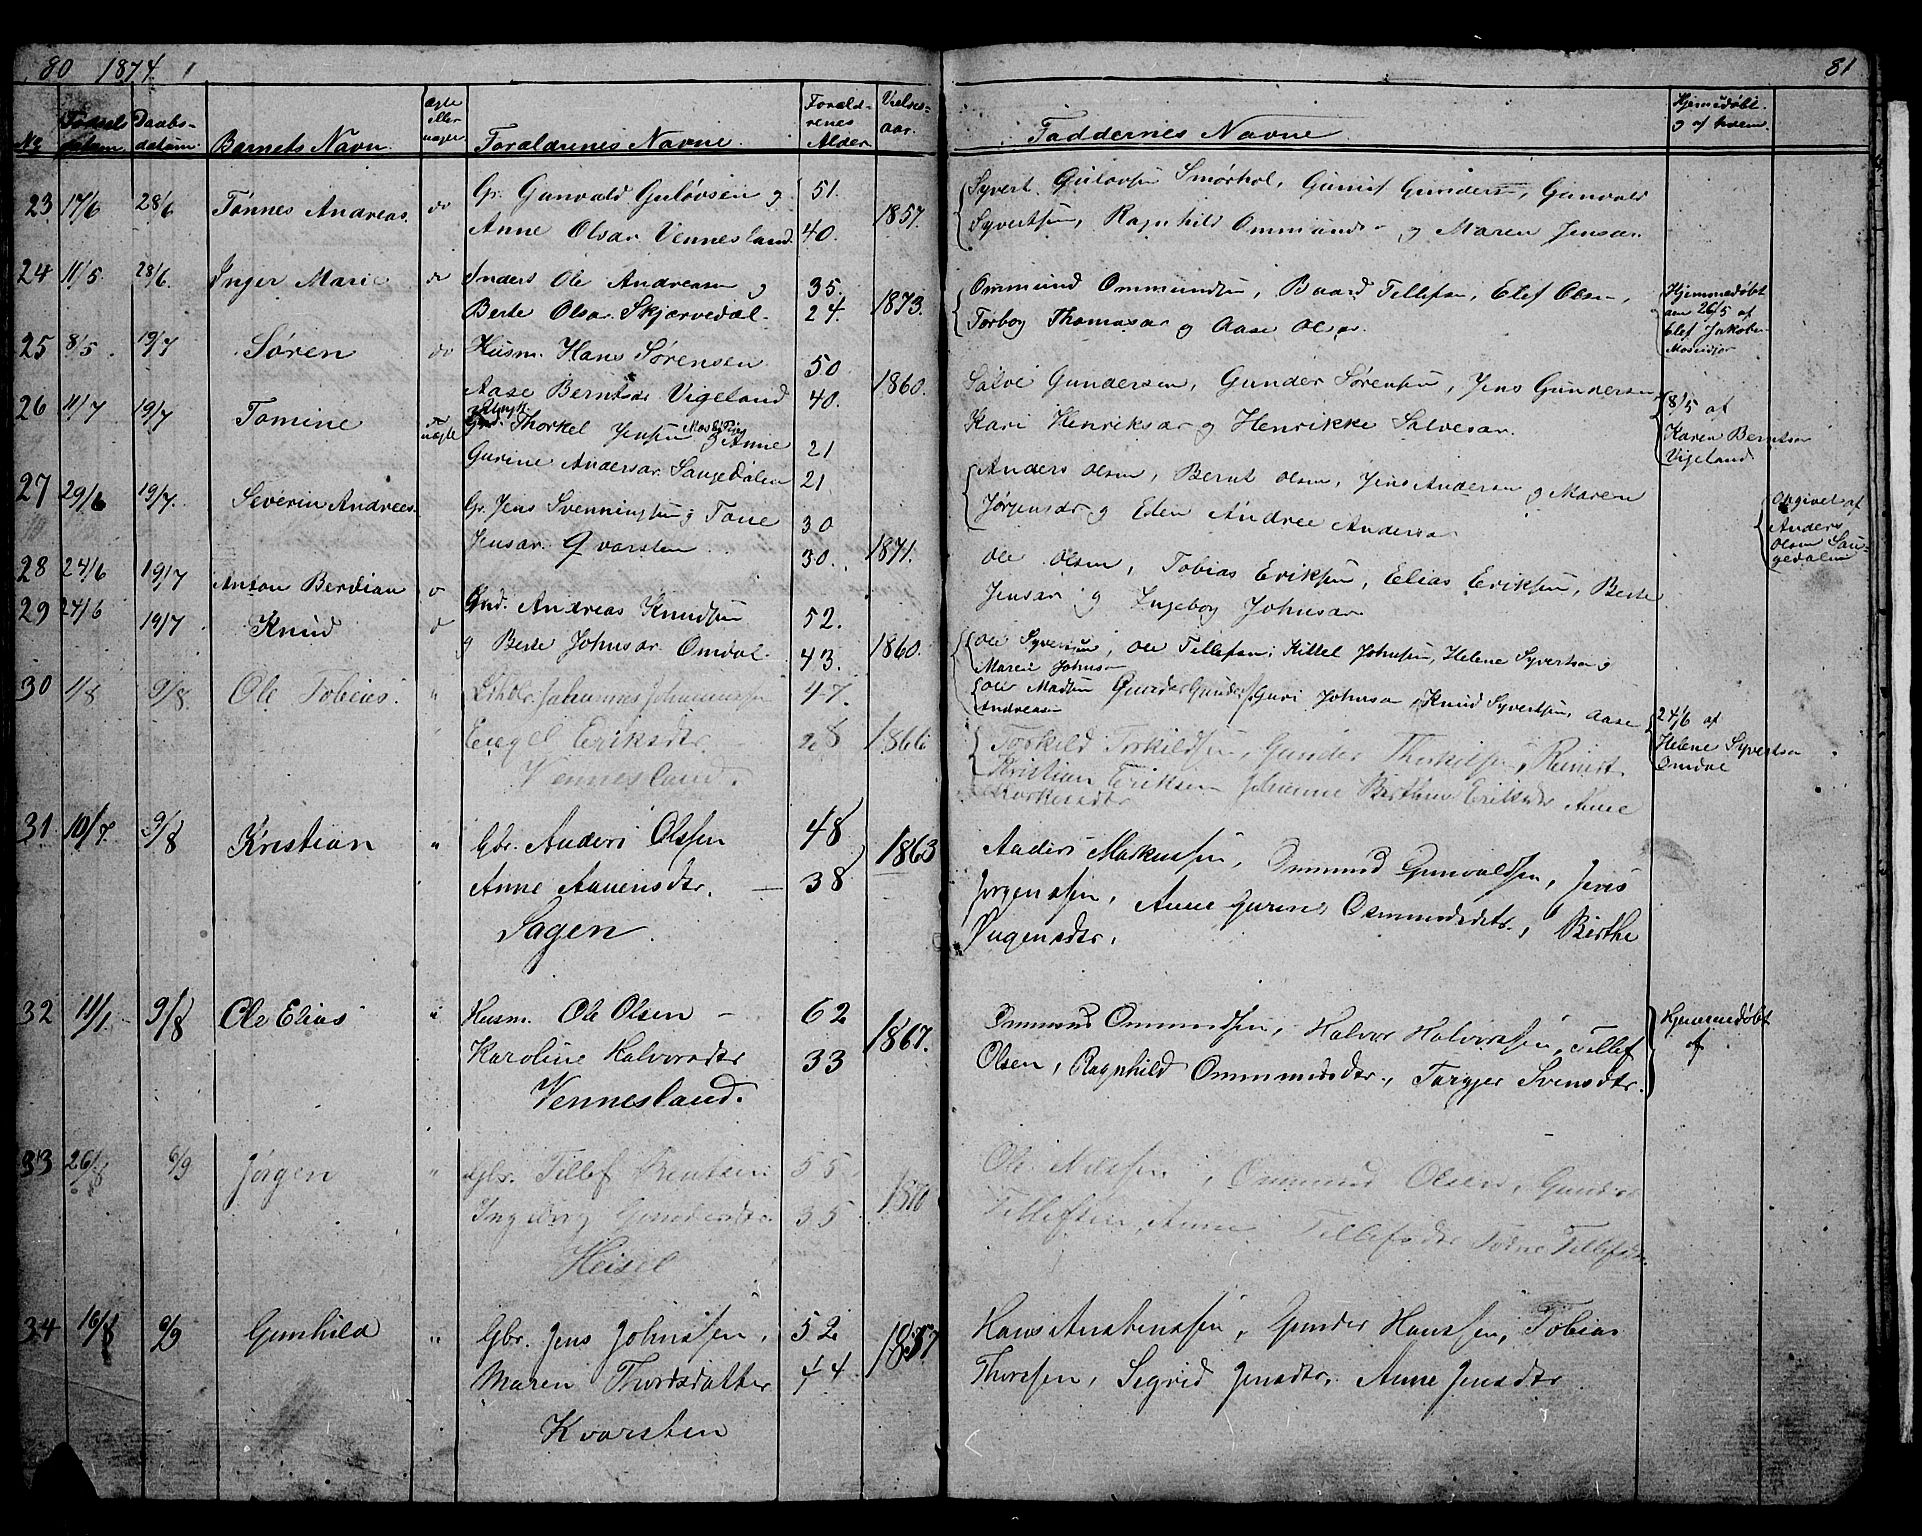 80 1874
81
No Fødsels datum
Daabs- datum
Barnets Navn
ægte eller uægte
Forældrenes Navne
Foræld- renes Alder
Vielses- aar.
Faddernes Navne
Hjemmedøbt og af hvem
23 17/6 28/6 Tønnes Andreas do Gr. Gunvald Guløvsen og 51.
Anne Olsdr Vennesland 40. 1857.
Syvert Guløvsen Smørhol, Gunuf Gunders, Gunvald
Syvertsen, Ragnhild Ommunds og Maren Jensdr
24 11/5 28/6. Inger Marie do Inders Ole Andreasen og 35.
Berte Olsdr Skjærvedal. 24. 1873.
Ommund Ommundsen, Baard Tellefsen, Elef Olsen,
Torbog Thomasdr og Aase Olsdr
Hjemmedøbt
den 26/5 af
Elef Jakobs
25 8/5. 19/7 Søren do Husm. Hans Sørensen 50
Aase Berntsdr Vigeland 40. 1860.
Salve Gundersen, Gunder Sørensen, Jens Gundersen
Kari Henriksdr og Henrikke Salvesdr.
8/5 af
Karen Berntsdr
Vigeland
26 11/7 19/7 Tomine uægte Thorkel Jensen og Anne 21
Gurine Andersdr Saugedalen 21
Anders Olsen, Bernt Olsen, Jens Andersen og Maren
Jørgensdr og Eden Andree Andersdr
Opgivet af
Anders
Olsen Sau-
gedalen
27 29/6 19/7. Severin Andreas. Gr. Jens Svenningsen og Tone 30
Jensdr. Qvarsten 30. 1871.
Ole Olsen, Tobias Eriksen, Elias Eriksen, Berte
Jensdr og Ingeborg Johnsdr
28 24/6 19/7 Anton Berdian
29 24/6 19/7. Knud
Grd. Andreas Knudsen 52.
og Berte Johnsdr Omdal. 43. 1860.
Ole Syvertsen, Ole Tellefsen, Kittel Johnsen, Helene Syvertsdr og
Maren Johnsdr
Ole Madsen Gunder Gunders Guri Johnsdr, Knud Syvertsen, Aase
Andreasen
24/6 af
Helene Syvertsdr
Omdal
30 4/8 9/8. Ole Tobias " Johannes Johannessen 47.
Engel Eriksdtr. 28 1866
Vennesland.
Torkild Torkildsen, Gunder Thorkilsen,
Kristian Eriksen Johanne Birthe Eriksdtr Anne
31 10/7. 9/8 Kristian " Gbr. Anders Olssen 48
Anne Aanensdtr. 38 1863
Sagen.
Anders Markussen, Ommund Gunvaldsen, Jens
Jørgenssen, Anne Gurine Osmundsdtr., Birthe
32 11/1 9/8 Ole Elias " Husm. Ole Olsen 62
Karoline Halvorsdtr 33 1867.
Vennesland.
Ommund Ommundsen, Halvor Halvorssen, Tellef
Olsen, Ragnhild Ommundsdtr., Torgjer Svensdtr.
Hjemmedøbt
af
33 26/8 6/9 Jørgen " Gbr. Tellef Bentsen 55
Ingeborg Gundersdtr 35
Heisel
Ole Nilssen, Ommund Olsen, Gunder
Tellefsen, Anne Tellefsdtr Tone Tellefsdtr.
34 16/8 6/9 Gunhild " Gbr. Jens Johnssen, 52
Maren Thordsdatter 44 1857
Kvarsten
Hans Anstenssen, Gunder Hanssen, Tobias
Thorssen, Sigrid Jensdtr. Anne Jensdtr